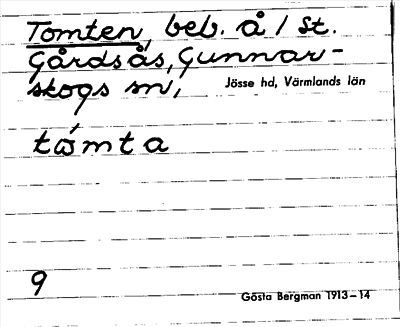 Tomten, beb. å / St.
Gårdsås, Gunnar-
skogs sn,
Jösse hd, Värmlands län
tώmta
9
Gösta Bergman 1913–14